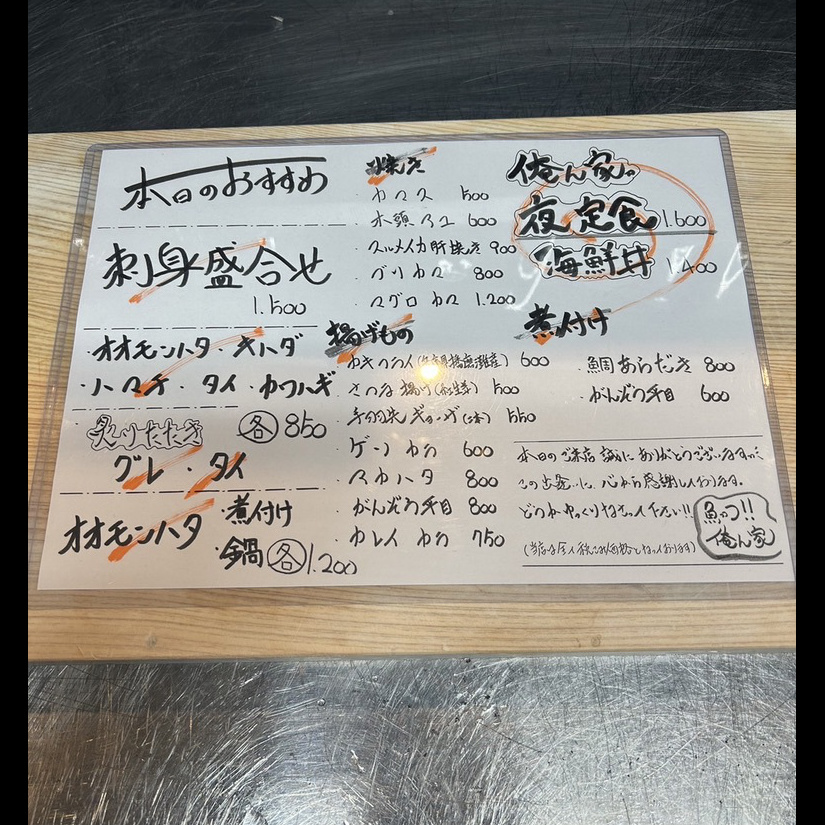 本日のおすすめ
刺身盛合せ
1.500
・オオモンハタ・キハダ
・ハマチ・タイ・カワハギ
炙りたたき 各 850
グレ・タイ
オオモンハタ ・煮付け
・鍋 各 1.200
焼き
・カマス 500
・木頭アユ 600
・スルメイカ肝焼き 900
・ブリカマ 800
・マグロカマ 1.200
揚げもの
カキフライ 600
・さつま揚げ 500
・手羽先ギョーザ(2本) 550
・ゲソカラ 600
・マカハタ 800
・がんぞう平目 800
・カレイカラ 750
俺ん家。
夜定食 1.600
海鮮丼 1.400
煮付け
・鯛あらだき 800
・がんぞう平目 600
本日のご来店誠にありがとうございます。
この出会いに、心から感謝しております。
どうぞゆっくりなさって下さい!!
(当店は全て税込み価格となっております)
魚っ!!
俺ん家